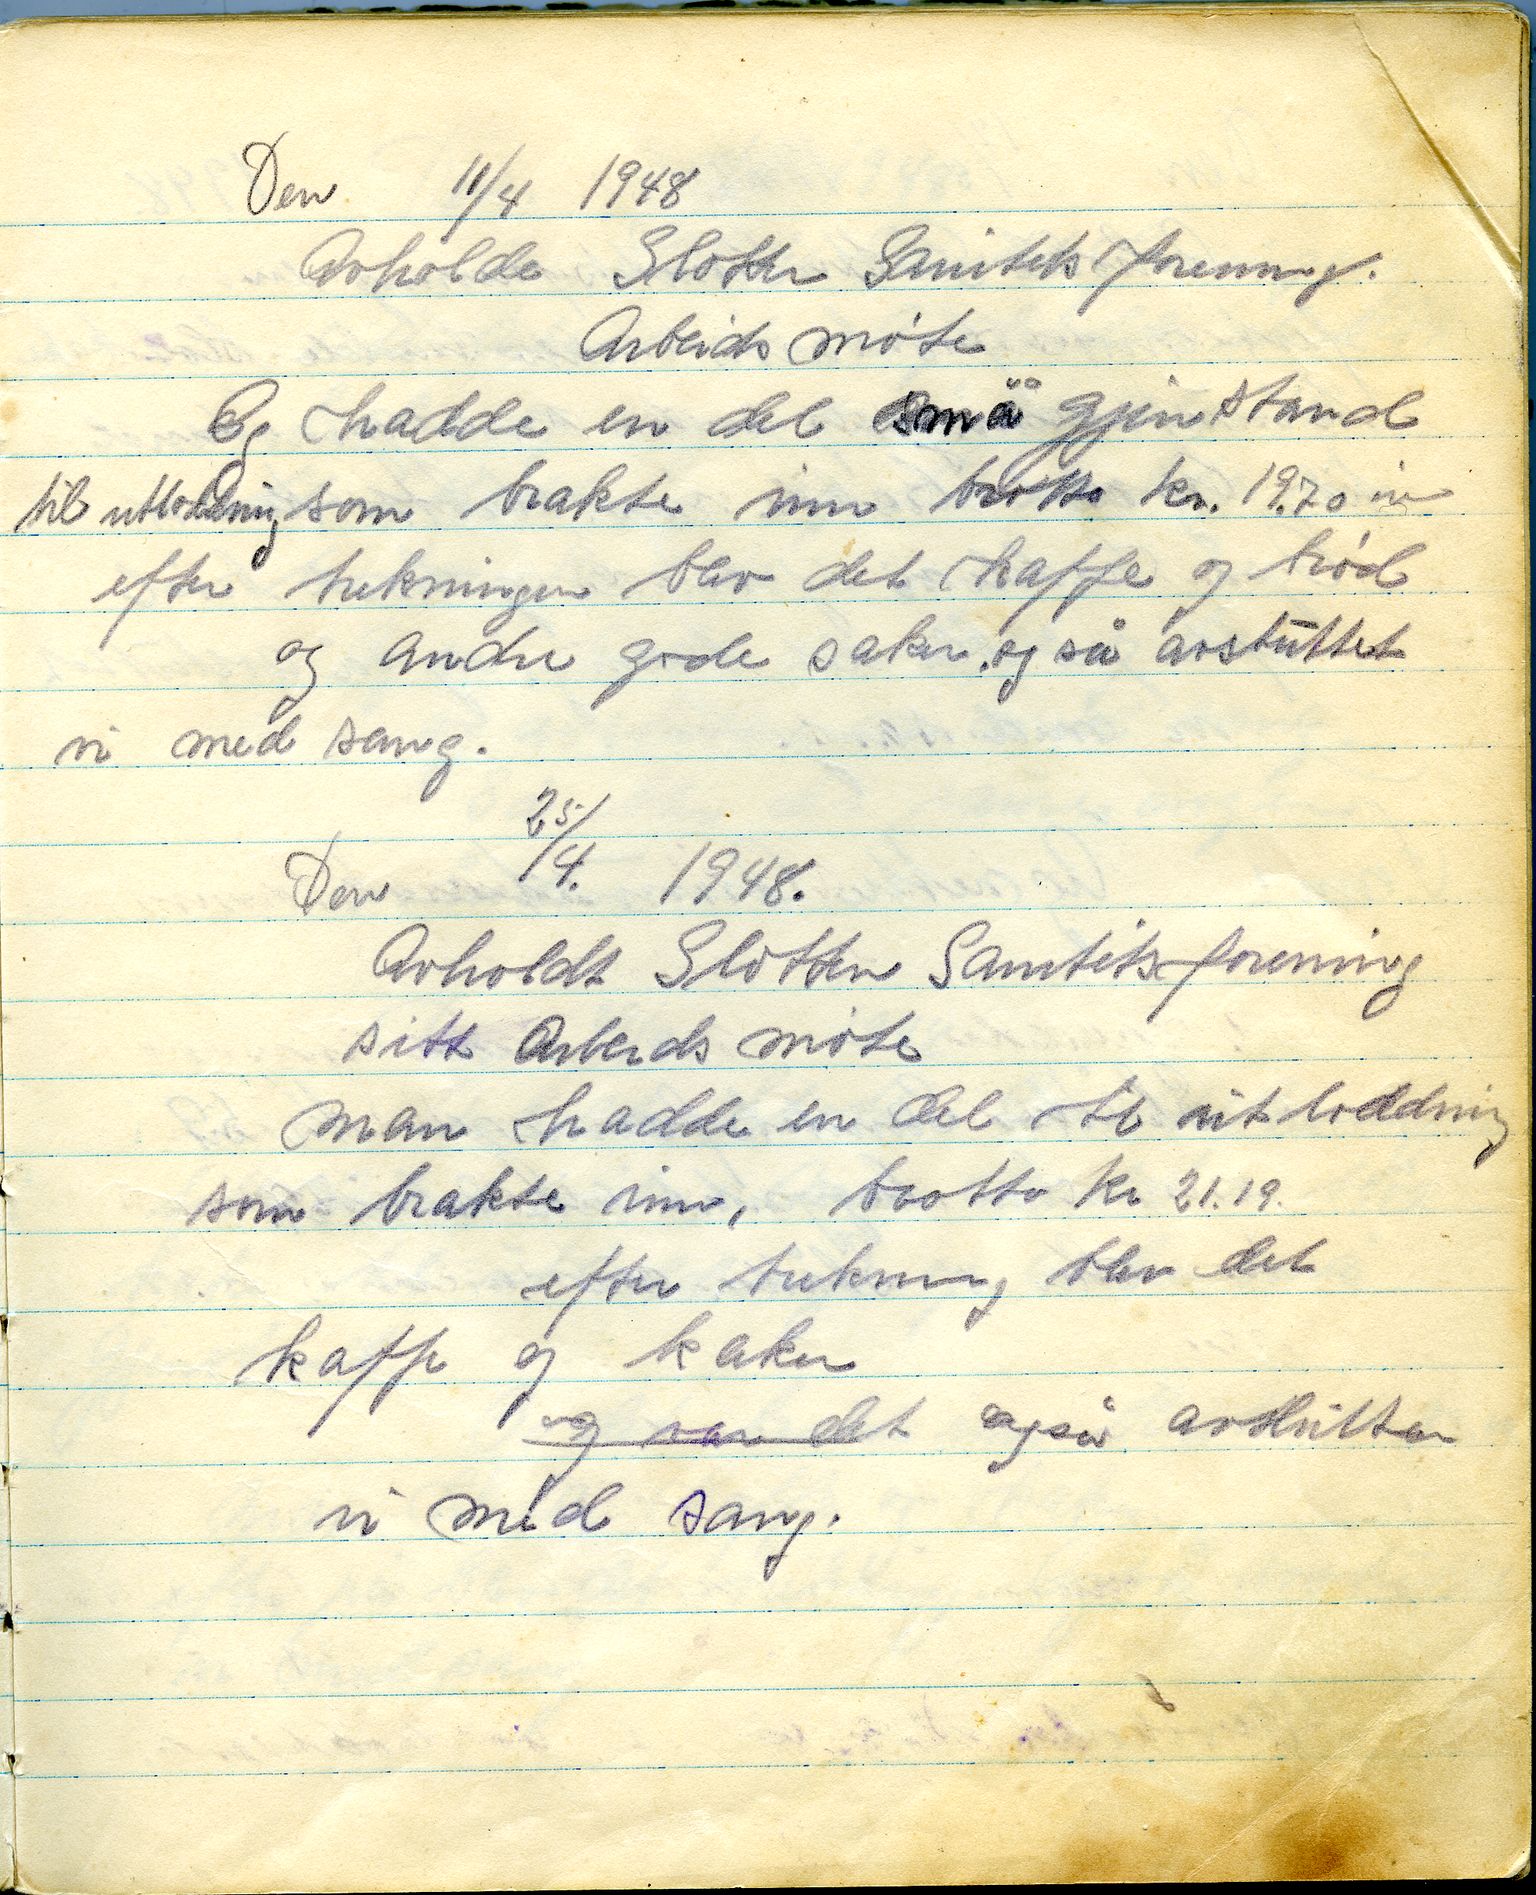 Den 11/4 1948
Avholde Slotten Sanitetsforening.
Arbeids møte
Og hadde en del små gjenstand
til utlodning som brakte inn brotto kr. 19.70
efter trekningen blev det kaffe og brød
og andre gode saker. og så avsluttet
vi med sang.
Den 25/4. 1948.
Avholdt Slotten Sanitetsforening
sitt Arbeids møte
man hadde en del til utloddning
som brakte inn, brotto kr 21.19.
efter trekning blev det
kaffe og kaker
og var det også avsluttet
vi med sang.